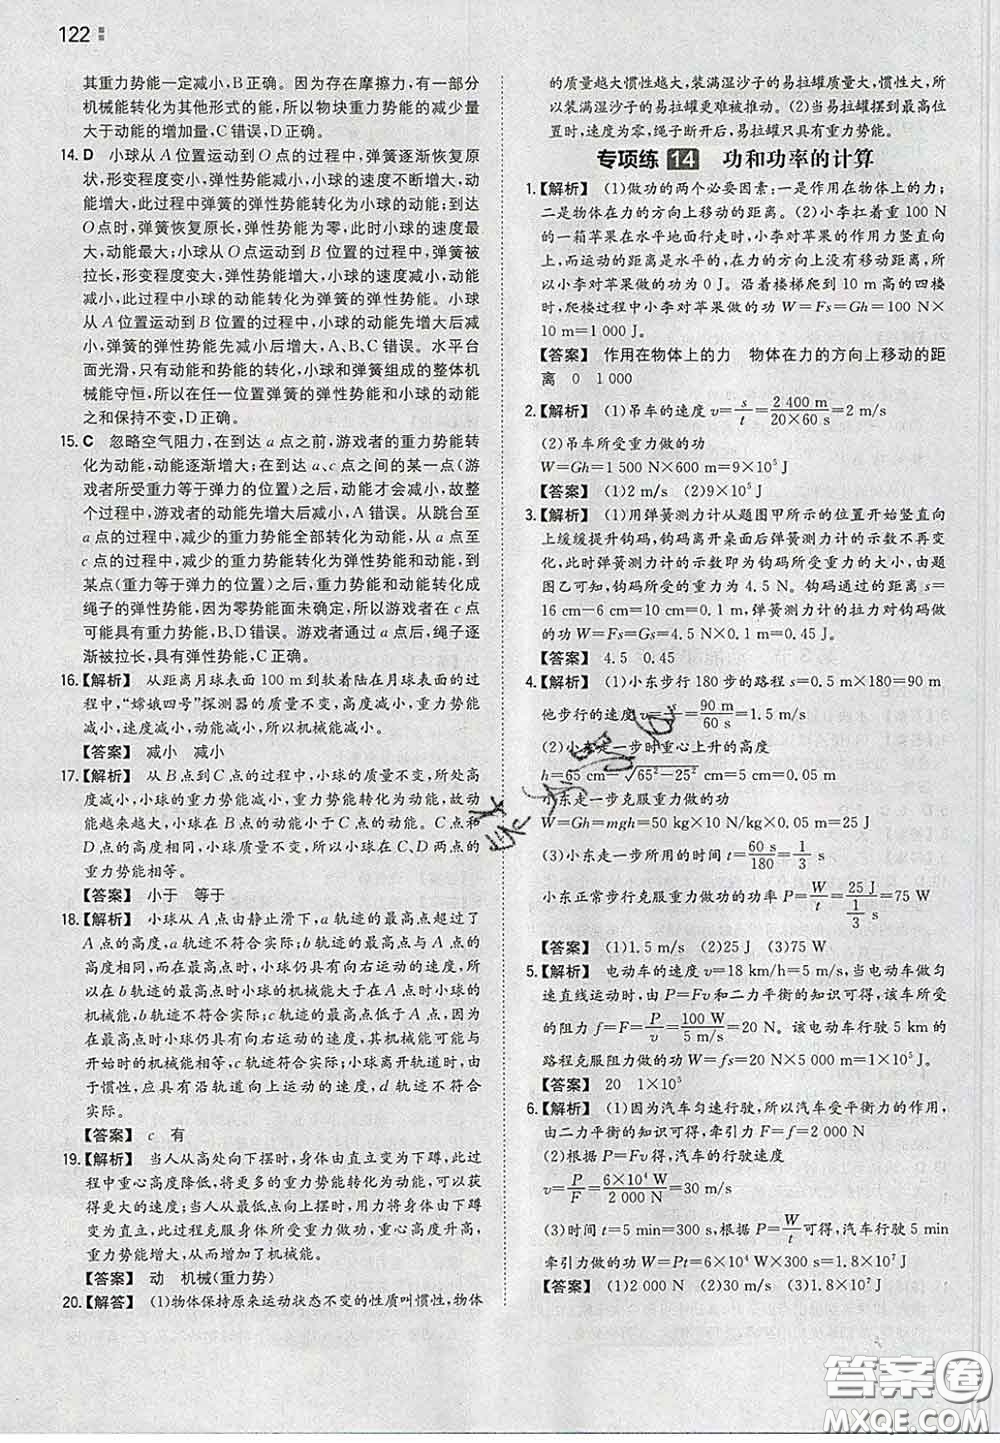 122
其重力势能一定减小,B正确。因为存在摩擦力,有一部分
机械能转化为其他形式的能,所以物块重力势能的减少量
大于动能的增加量,C错误,D正确。
14. D 小球从A位置运动到O点的过程中,弹簧逐渐恢复原
状,形变程度变小,弹性势能变小,小球的速度不断增大,动
能增大,此过程中弹簧的弹性势能转化为小球的动能;到达
O点时,弹簧恢复原长,弹性势能为零,此时小球的速度最
大,动能最大;小球从O点运动到B位置的过程中,弹簧被
拉长,形变程度变大,弹性势能变大,小球的速度不断减小,
动能减小,此过程中小球的动能转化为弹簧的弹性势能。小
球从A位置运动到B位置的过程中,小球的动能先增大后减
小,弹簧的弹性势能先减小后增大,A、B、C错误。水平平
台面光滑,只有动能和弹性势能的转化,小球和弹簧组成的整体机
械能守恒,所以在任一位置弹簧的弹性势能和小球的动能
之和保持不变,D正确。
15. C 忽略空气阻力,在到达a点之前,游戏者的重力势能转
化为动能,动能逐渐增大;在到达a、c点之间的某一点(游
戏者所受重力等于弹力的位置)之后,动能才会减小,故整
个过程中,游戏者的动能先增大后减小,A错误。从跳台至
a点的过程中,减少的重力势能全部转化为动能,从a点至
c点的过程中,减少的重力势能转化为弹性势能和动能,到
某点(重力等于弹力的位置)后,重力势能和动能转化成
绳子的弹性势能。因为零势能面未确定,所以游戏者在c点
可能具有重力势能,B、D错误。游戏者通过a点后,绳子逐
渐被拉长,具有弹性势能,C正确。
16.【解析】 从距离月球表面100 m到软着陆在月球表面的过
程中,“嫦娥四号”探测器的质量不变,高度减小,重力势能
减小,速度减小,动能减小,所以机械能减小。
【答案】 减小 减小
17.【解析】 从B点到C点的过程中,小球的质量不变,所处高
度减小,小球的重力势能减小,重力势能转化为动能,故动
能越来越大,小球在B点的动能小于C点的动能。C点和
D点的高度相同,小球质量相同,所以小球在C、D两点的重
力势能相等。
【答案】 小于 等于
18.【解析】 小球从A点由静止滑下,a轨迹的最高点超过了
A点的高度,a轨迹不符合实际;b轨迹的最高点与A点的
高度相同,而在最高点,小球仍具有向右运动的速度,所
以在b轨迹的最高点时小球的机械能大于在A点的机械
能,b轨迹不符合实际;c轨迹的最高点低于A点,因为在
最高点时小球仍具有向右运动的速度,其机械能可能与
开始时的机械能相等,c轨迹符合实际;小球离开轨道时,由
于惯性,应具有沿轨道向上运动的速度,d轨迹不符合
实际。
【答案】 c 有
19.【解析】 当人从高处向下摆时,身体由直立变为下蹲,此过
程中重心高度降低,将更多的重力势能转化为动能,从而可
以获得更大的速度;当人从最低点向上摆时,身体由下蹲
变为直立,此过程克服身体所受重力做功,重心高度升高,
重力势能增大,从而增加了机械能。
【答案】 动 机械(重力势)
20.【解答】 (1)物体保持原来运动状态不变的性质叫惯性,物体
的质量越大惯性越大,装满湿沙子的易拉罐质量大,惯性大,所
以装满湿沙子的易拉罐更难被推动。(2)当易拉罐摆到最高位
置时,速度为零,绳子断开后,易拉罐只具有重力势能。
专项练 14 功和功率的计算
1.【解析】 (1)做功的两个必要因素:一是作用在物体上的力;
二是物体在力的方向上移动的距离。(2)小李扛着重100 N
的一箱苹果在水平地面行走时,小李对苹果的作用力竖直向
上,而运动的距离是水平的,力的方向与运动方向垂直,所
以小李对苹果做的功为0 J。沿着楼梯爬到10 m高的四楼
时,爬楼过程中小李对苹果做的功W=Fs=Gh=100 N×
10 m=1 000 J。
【答案】 作用在物体上的力 物体在力的方向上移动的距
离 0 1 000
2.【解析】 (1)吊车的速度v=s/t=2 400 m/20×60 s=2 m/s
(2)吊车所受重力做的功
W=Gh=1 500 N×600 m=9×10⁵ J
【答案】 (1)2 m/s (2)9×10⁵ J
3.【解析】 (1)用弹簧测力计从题图甲所示的位置开始竖直向
上缓缓提升钩码,钩码离开桌面后弹簧测力计的示数不再变
化,此时弹簧测力计的示数即为钩码所受重力的大小,由题
图乙可知,钩码所受的重力为4.5 N。钩码通过的距离s=
16 cm-6 cm=10 cm=0.1 m,弹簧测力计的拉力对钩码做
的功W=Fs=Gs=4.5 N×0.1 m=0.45 J。
【答案】 4.5 0.45
4.【解析】 (1)小东步行180步的路程s=0.5 m×180=90 m
他步行的速度v=s/t=90 m/60 s=1.5 m/s
(2)小东走一步时重心上升的高度
h=65 cm-√65²-25² cm=5 cm=0.05 m
小东走一步克服重力做的功
W=Gh=mgh=50 kg×10 N/kg×0.05 m=25 J
(3)小东走一步所用的时间t=60 s/180=1/3 s
小东正常步行克服重力做功的功率P=W/t=25 J/(1/3 s)=75 W
【答案】 (1)1.5 m/s (2)25 J (3)75 W
5.【解析】 电动车的速度v=18 km/h=5 m/s,当电动车做匀
速直线运动时,由P=Fv和二力平衡的知识可得,该车所受
的阻力f=F=P/v=100 W/5 m/s=20 N。该电动车行驶5 km的
路程克服阻力做的功W=fs=20 N×5 000 m=1×10⁵ J。
【答案】 20 1×10⁵
6.【解析】 (1)因为汽车匀速行驶,所以汽车受平衡力的作用,
由二力平衡的知识可得,牵引力F=f=2 000 N
(2)根据P=Fv可得,汽车的行驶速度
v=P/F=6×10⁴ W/2 000 N=30 m/s
(3)时间t=5 min=300 s,根据P=W/t可得,汽车行驶5 min
牵引力做的功W=Pt=6×10⁴ W×300 s=1.8×10⁷ J
【答案】 (1)2 000 N (2)30 m/s (3)1.8×10⁷ J
答案圈
MXQE.COM